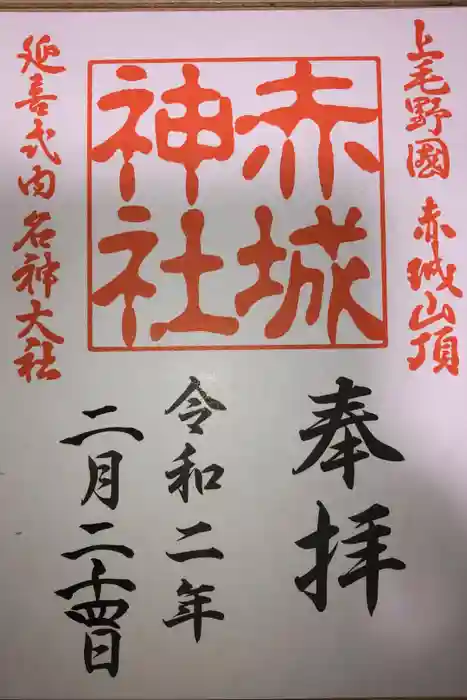 上毛野國 赤城山頂
赤城
神社
延喜式内名神大社
奉拝
令和二年
二月二十四日